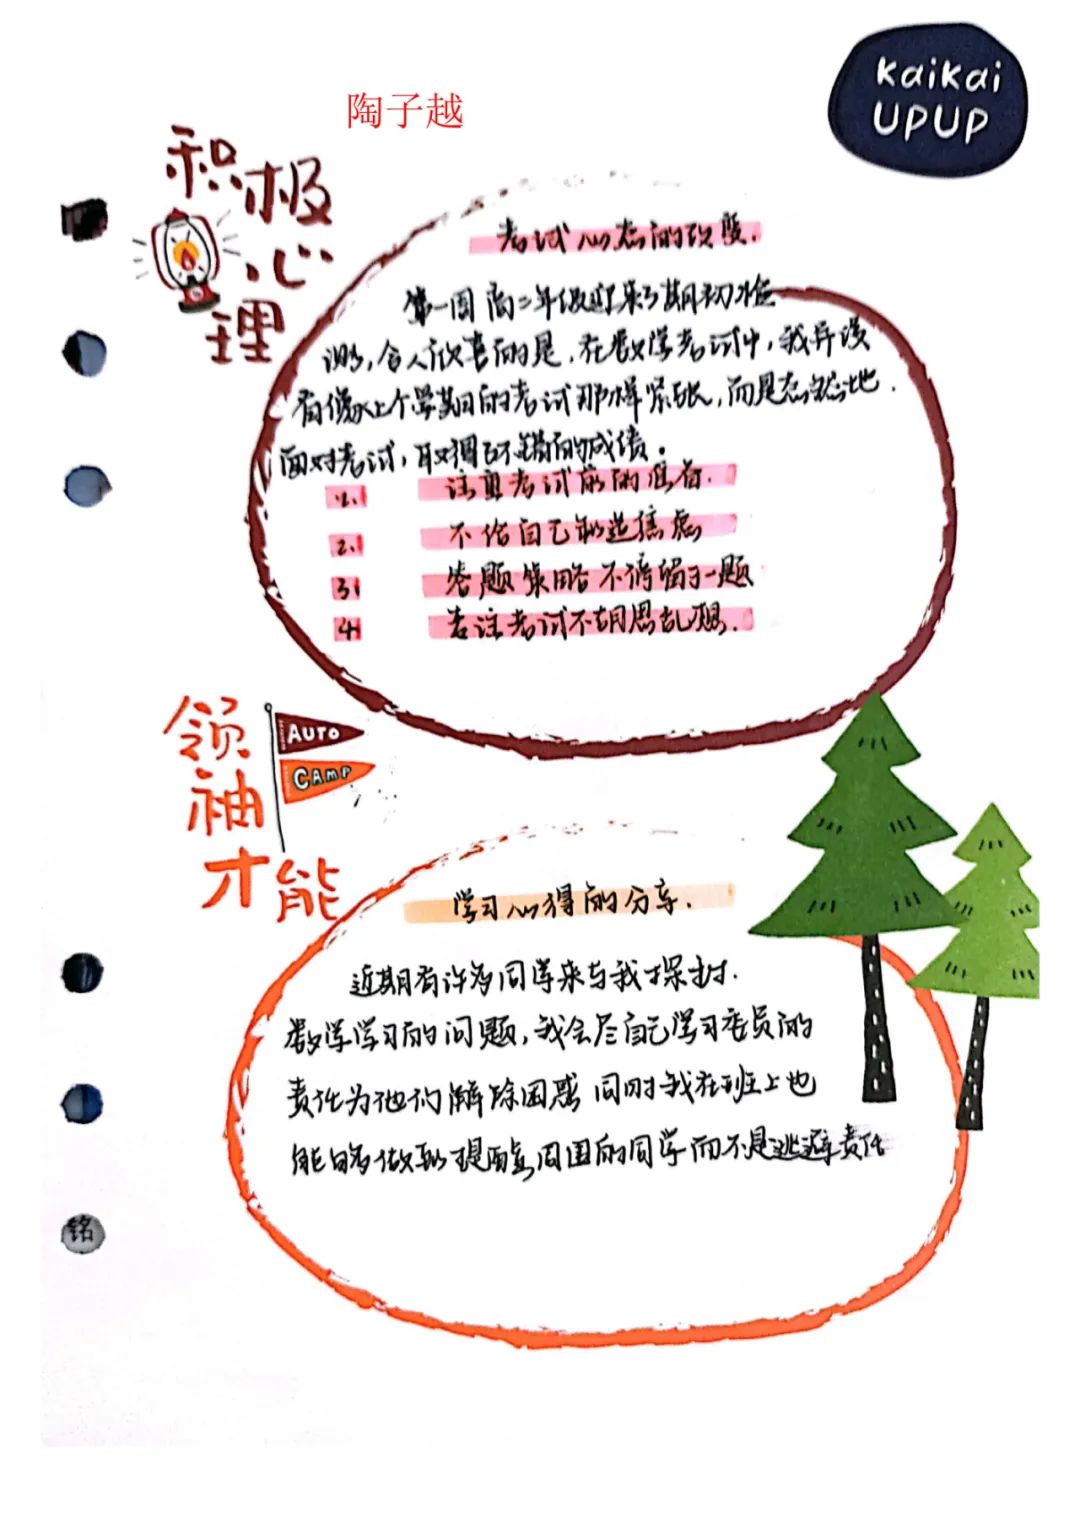 陶子越
kaikai
UPUP
积极
心
理
考试心态的改变.
第一周高二年级迎来了期初检
测,令人欣喜的是,在数学考试中,我并没
有像上个学期的考试那样紧张,而是态然地.
面对考试,取得了不错的成绩。
1.
注重考试前的准备.
2.
不给自己制造焦虑
3.
答题策略不停留于一题
4.
专注考试不胡思乱想.
领
袖
才能
AUTO
CAMP
学习心得的分享.
近期有许多同学来与我探讨.
数学学习的问题,我会尽自己学习委员的
责任为他们解除困惑 同时我在班上也
能够做到提醒周围的同学而不是逃避责任
铭